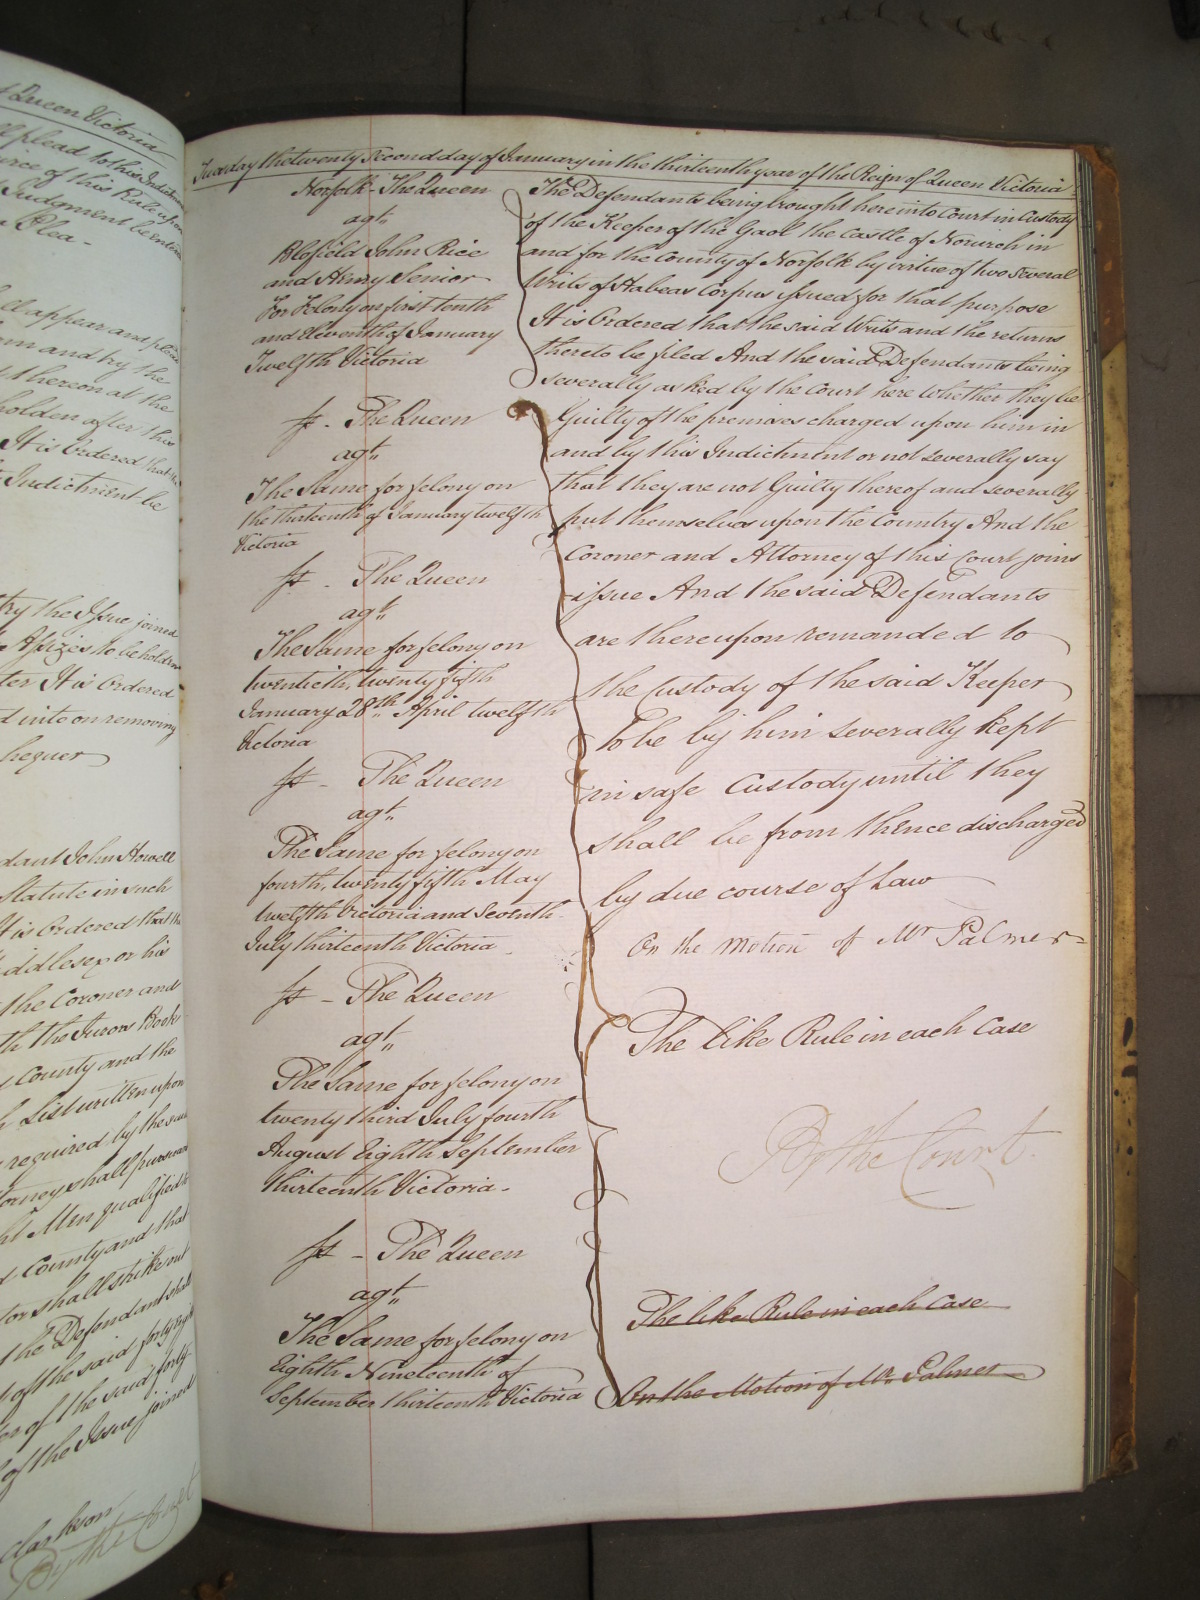 t Queen Victoria
ll plead to this Indictment
of this Rule upon
Judgment be entered
Plea -
ll appear and plea
and try the
thereon at the
holden after this
It is Ordered that the
Indictment be
try the Issue joined
Assizes to be holden
ter It is Ordered
d into on removing
hequer
dant John Howell
Statute in such
It is Ordered that the
iddlesex or his
the Coroner and
th the Jurors Book
County and the
List written upon
required by the said
torney shall pursuant
ht Men qualified
County and that
tor shall strike out
the Defendant shall
of the said forty eight
of the said forty
of the Issue joined
Clarkson
By the Court
Tuesday the twenty Second day of January in the thirteenth year of the Reign of Queen Victoria
Norfolk - The Queen
agt.
Blofield John Rice
and Henry Senior
For Felony on first tenth
and Eleventh of January
Twelfth Victoria
The Defendants being brought here into Court in Custody
of the Keeper of the Gaol the Castle of Norwich in
and for the County of Norfolk by virtue of two several
Writs of Habeas Corpus issued for that purpose
It is Ordered that the said Writs and the returns
thereto be filed And the said Defendants being
severally asked by the Court here whether they be
Guilty of the premises charged upon him in
and by this Indictment or not severally say
that they are not Guilty thereof and severally
put themselves upon the Country And the
Coroner and Attorney of this Court joins
issue And the said Defendants
are thereupon remanded to
the Custody of the said Keeper
To be by him severally kept
in safe Custody until they
shall be from thence discharged
by due course of Law
On the Motion of Mr Palmer
ss - The Queen
agt.
The Same for felony on
the thirteenth of January twelfth
Victoria
ss - The Queen
agt.
The Same for felony on
twentieth, twenty fifth
January 28th April twelfth
Victoria
ss - The Queen
agt.
The Same for felony on
fourth, twenty fifth May
twelfth Victoria and Seventh
July thirteenth Victoria
ss - The Queen
agt.
The Same for felony on
twenty third July fourth
August Eighth September
thirteenth Victoria -
ss - The Queen
agt.
The Same for felony on
Eighth Nineteenth of
September thirteenth Victoria
The like Rule in each Case
By the Court.
The like Rule in each Case
On the Motion of Mr. Palmer